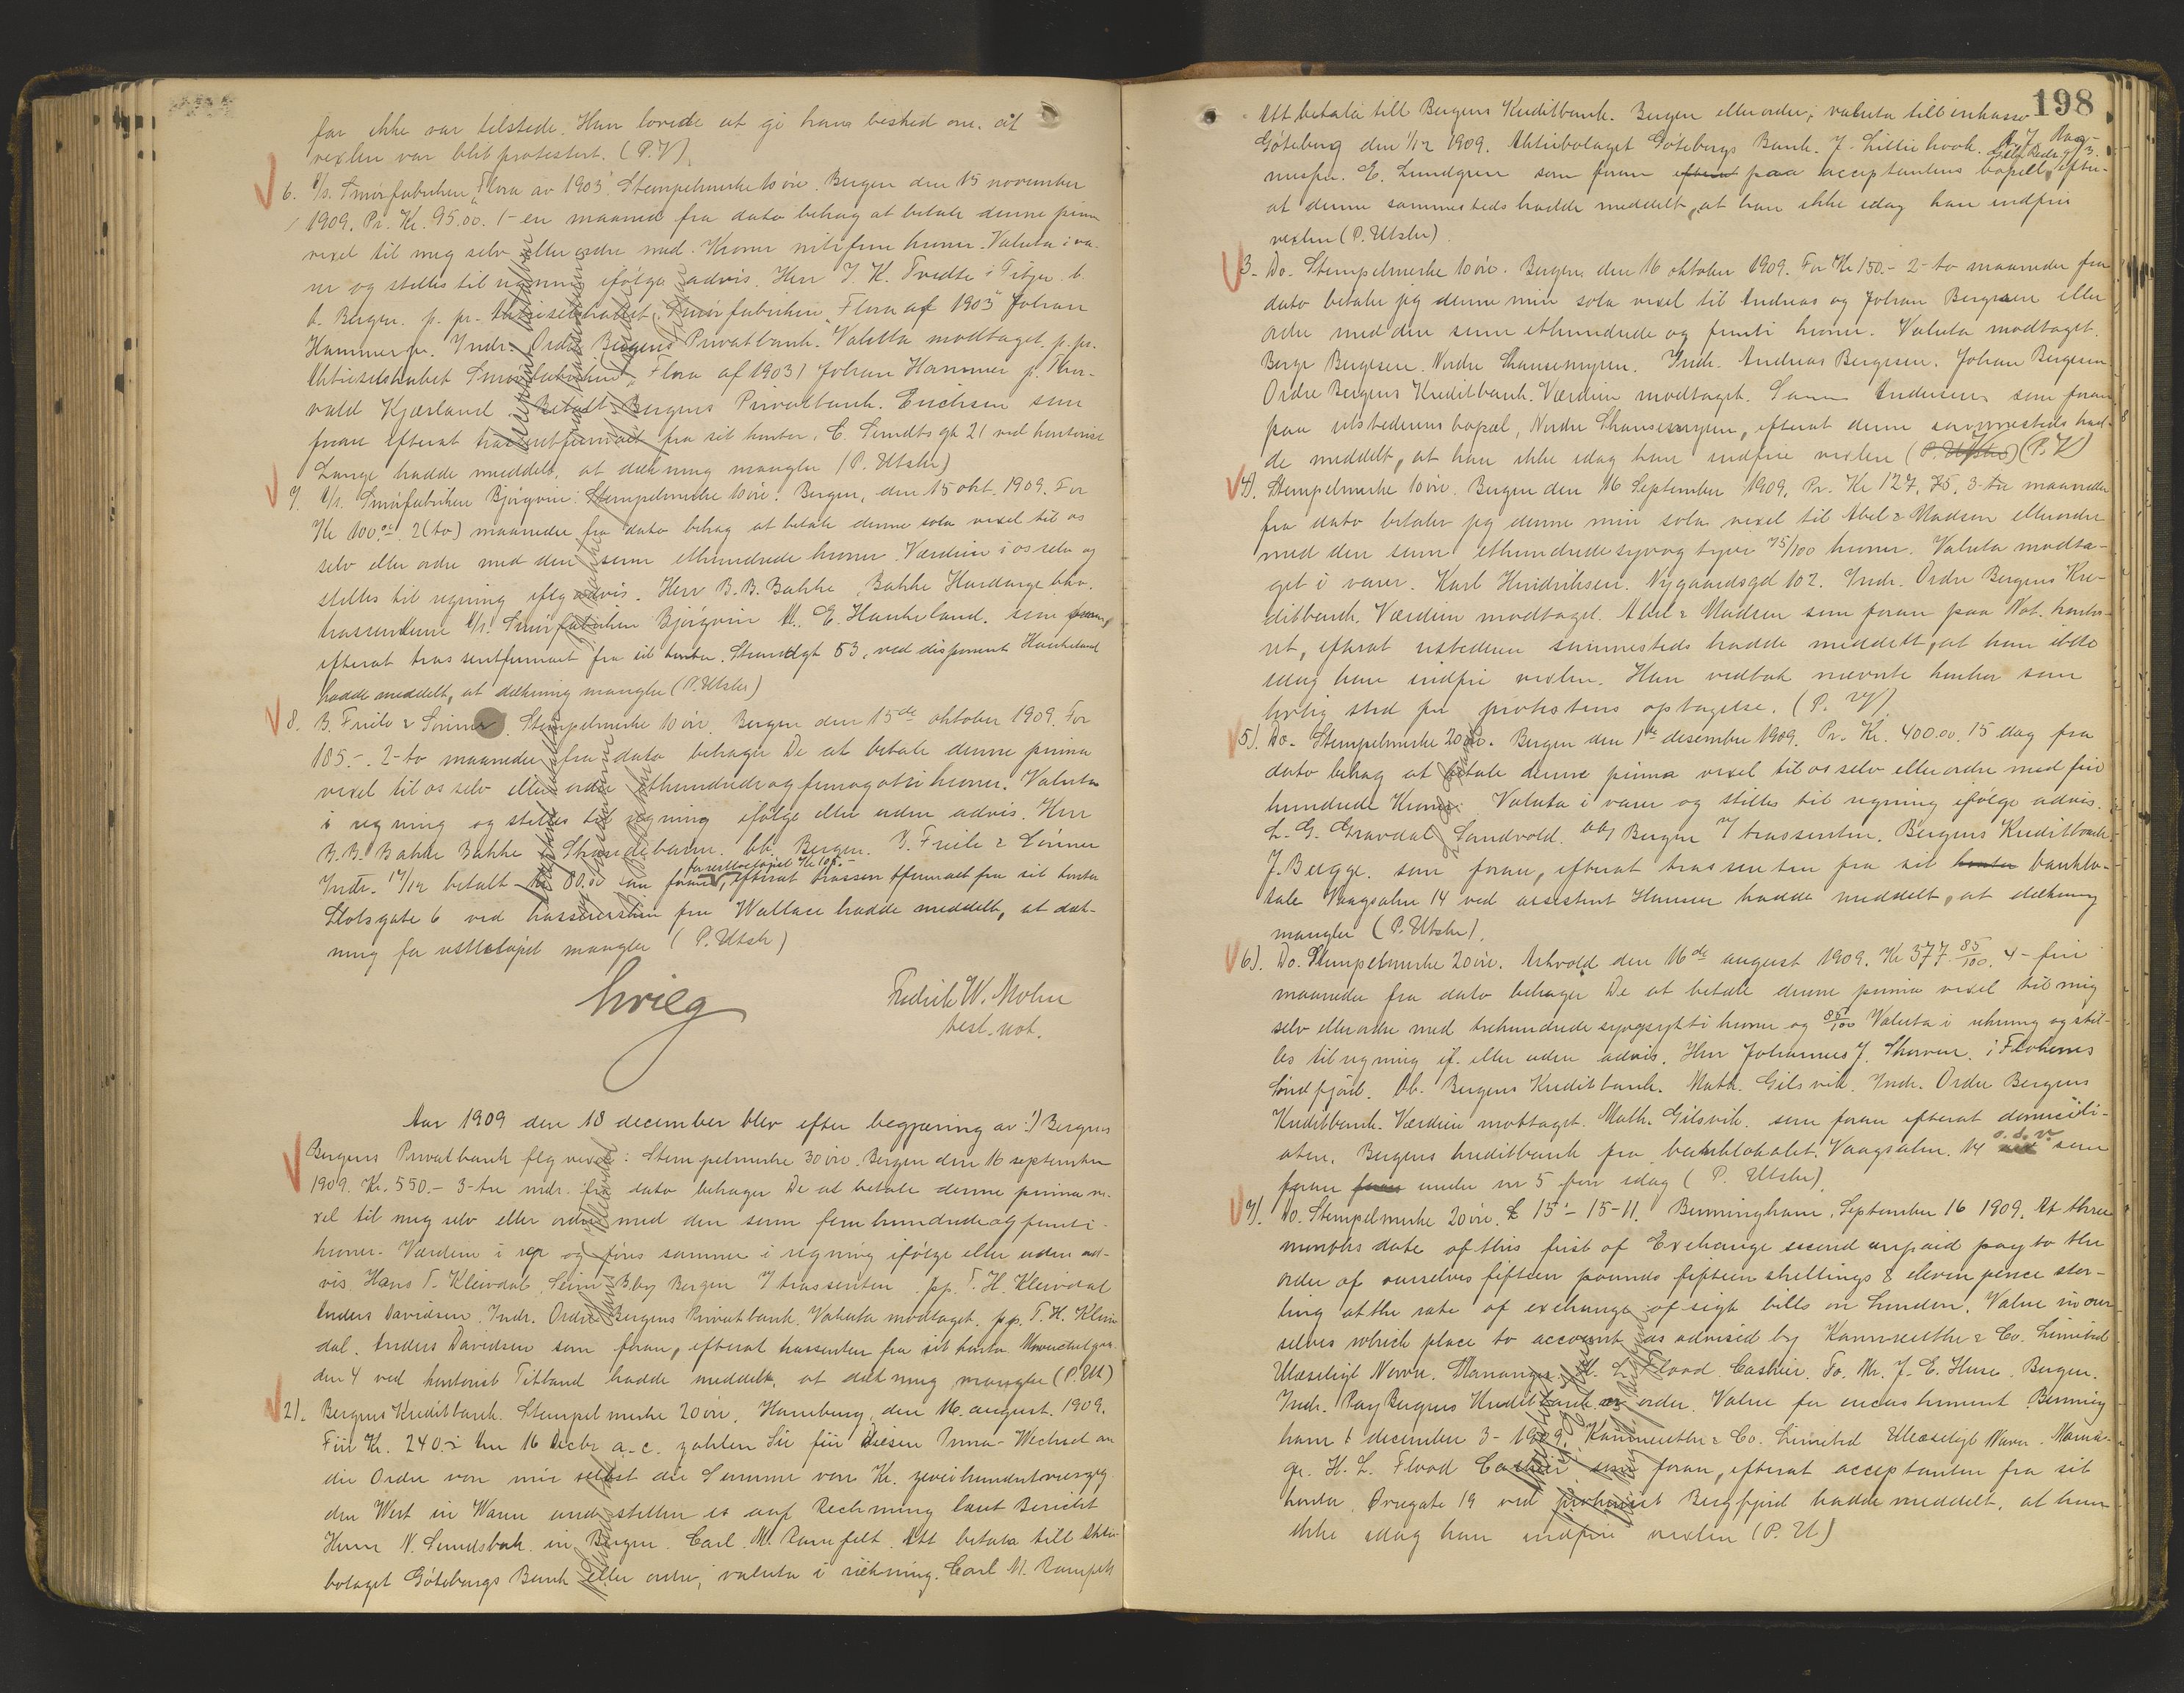 far ikke var tilstede. Han lovede at gi ham besked om, at
vexlen var blit protestert. (P.V)
6. A/s. Smørfabriken "Flora av 1903". Stempelmerke 10 øre. Bergen den 15 november
1909. Pr. Kr. 95.00. 1 - en maaned fra dato behag at betale denne prima
vexel til mig selv eller ordre med Kroner nitifem kroner. Valuta i va-
rer og stilles til regning ifølge advis. Herr J. K. Tvedte i
b. Bergen. p. pr. Aktieselskabet Smørfabriken "Flora af 1903" Johan
Hammer jr. Indr. Ordre Bergens Privatbank. Valuta modtaget. p. pr.
Aktieselskabet Smørfabriken "Flora af 1903" Johan Hammer jr. Thor-
vald Kjærland. Betalt Bergens Privatbank. Erichsen som
foran efterat trassentfirmaet fra sit kontor, C. Sundts gt 21 ved kontorist
Lange hadde meddelt, at dækning mangler (P. Utslr)
7. A/s. Smørfabriken Bjørgvin. Stempelmerke 10 øre. Bergen, den 15 okt. 1909. For
Kr 100.00. 2 (to) maaneder fra dato behag at betale denne sola vexel til os
selv eller ordre med den sum ethundrede kroner. Værdien i os selv og
stilles til regning iflg advis. Herr B. B. Bakke, Bakke Hardanger
trassenterne A/s. Smørfabriken Bjørgvin M. E. Haukeland. som foran,
efterat trassentfirmaet fra sit kontor, Strandgt 53, ved disponent Haukeland
hadde meddelt, at dækning mangler (P. Utslr)
8. B. Friele & Sønner. Stempelmerke 10 øre. Bergen den 15de oktober 1909. For
185.-. 2 - to maaneder fra dato behager De at betale denne prima
vexel til os selv eller ordre ethundredeogfemogotti kroner. Valuta
i regning og stilles til regning ifølge eller uden advis. Herr
B. B. Bakke Bakke Strandebarm. bb. Bergen. B. Friele & Sønner
for restbeløpet Kr 105.-
Indr. 17/12 betalt Kr 80.00 som foran, efterat trassentfirmaet fra sit kontor
Slotsgate 6 ved kassererske frø Wallace hadde meddelt, at dæk-
ning for restbeløpet mangler (P. Utslr)
Grieg
Fredrik W. Mohn
best. not.
Aar 1909 den 18 december blev efter begjæring av: 1) Bergens
Bergens Privatbank flg vexler: Stempelmerke 30 øre. Bergen den 16 september
1909. Kr. 550.- 3 - tre mdr. fra dato behager De at betale denne prima ve-
xel til mig selv eller ordre med den sum femhundredeogfemti
kroner. Værdien i rgn og føres samme i regning ifølge eller uden ad-
vis Hans T. Kleivdal, Seim B by Bergen T/ trassenten. pp. T. H. Kleivdal
Anders Davidsen. Indr. Ordre Bergens Privatbank. Valuta modtaget. pp. T. H. Kleiv
dal. Anders Davidsen som foran, efterat trassenten fra sit kontor
den 4 ved kontorist Titland hadde meddelt, at dækning mangler (P. Utl)
2). Bergens Kreditbank. Stempelmerke 20 øre. Hamburg, den 16. august. 1909.
Für Kr. 240.- Am 16 Decbr a. c. zahlen Sie für diesen Prima-Wechsel an
die Ordre von mir selbst die Summe von Kr. zweihundertvierzig
den Wert in Waren und stellen es auf Rechnung laut Bericht
Herrn N. Sundsbak in Bergen. Carl M. Ramfelt. Att betala till Aktie-
bolaget Göteborgs Bank eller order, valuta i räkning. Carl M. Ramfelt
198
Att betala till Bergens Kreditbank. Bergen eller order, valuta till inkasso
Göteborg den 1/12 1909. Aktiebolaget Göteborgs Bank. J. Lilliehöök.
E. Lundgren som foran efterat paa acceptantens bopæl, efter-
at denne sammesteds hadde meddelt, at han ikke idag kan indfri
vexlen (P. Utslr).
3. Do. Stempelmerke 10 øre. Bergen den 16 oktober 1909. For Kr 150.- 2 - to maaneder fra
dato betaler jeg denne min sola vexel til Andreas og Johan Bergesen eller
ordre med den sum ethundrede og femti kroner. Valuta modtaget.
Berge Bergesen. Nordre Skansemyren. Indr. Andreas Bergesen. Johan Bergesen
Ordre Bergens Kreditbank. Værdien modtaget. Andersen som foran
paa utstederens bopæl, Nordre Skansemyren, efterat denne sammesteds had-
de meddelt, at han ikke idag kan indfri vexlen (P. Utslr) (P. V)
4). Stempelmerke 10 øre. Bergen den 16 September 1909. Pr. Kr 127,75. 3 - tre maaneder
fra dato betaler jeg denne min sola vexel til Abel & Madsen eller ordre
med den sum ethundredesyvogtyve 75/100 kroner. Valuta modta-
get i varer. Karl Hendriksen. Nygaardsgd 102. Indr. Ordre Bergens Kre-
ditbank. Værdien modtaget. Abel & Madsen som foran paa Not. konto-
ret, efterat utstederen sammesteds hadde meddelt, at han ikke
idag kan indfri vexlen. Han vedtok nævnte kontor som
lovlig sted for protestens optagelse. (P. V)
5). Do. Stempelmerke 20 øre. Bergen den 1de desember 1909. Pr. Kr. 400.00. 15 dag fra
dato behag at betale denne prima vexel til os selv eller ordre med fire
hundrede Kroner. Valuta i varer og stilles til regning ifølge advis.
L. G. Gravdal, Sandvold. bby Bergen T/ trassenten. Bergens Kreditbank
J. Bugge. som foran, efterat trassenten fra sit kontor banklo-
kale Vaagsalm 14 ved assistent Hansen hadde meddelt, at dækning
mangler (P. Utslr).
6). Do. Stempelmerke 20 øre. Askvold den 16de august 1909. Kr 377 85/100. 4 - fire
maaneder fra dato behager De at betale denne prima vexel til mig
selv eller ordre med trehundrede syvogsytti kroner og 85/100 Valuta i rekning og stil-
les til regning if. eller uden advis. Herr Johannes J. Skorven i Flokenes
Søndfjord. Bb. Bergens Kreditbank. Math. Gilsvik. Indr. Ordre Bergens
Kreditbank. Værdien mottaget. Math. Gilsvik. som foran efterat domicili-
aten, Bergens kreditbank fra banklokalet, Vaagsalm. 14 o.s.v. som
foran foran under nr 5 for idag (P. Utslr).
7). Do. Stempelmerke 20 øre. £ 15 - 15 - 11. Birmingham. September 16 1909. At three
months date of this first of Exchange second unpaid pay to the
order of ourselves fifteen pounds fifteen shillings & eleven pence ster-
ling at the rate of exchange of sight bills on London. Value in our
selves which place to account as advised by Kannreuther & Co. Limited
Ulæseligt Navn. Mananger. H. L. Flood. Cashier. To. Mr. J. E. Huse. Bergen.
Indr. Pay Bergens Kreditbank or order. Value for encashment. Birming
ham t december 3 - 1909. Kannreuther & Co. Limited Ulæseligt Navn. Mana-
ger. H. L. Flood Cashier som foran, efterat acceptanten fra sit
kontor, Øvregate 19 ved prokurist Bergfjord hadde meddelt, at han
ikke idag kan indfri vexlen (P. U)